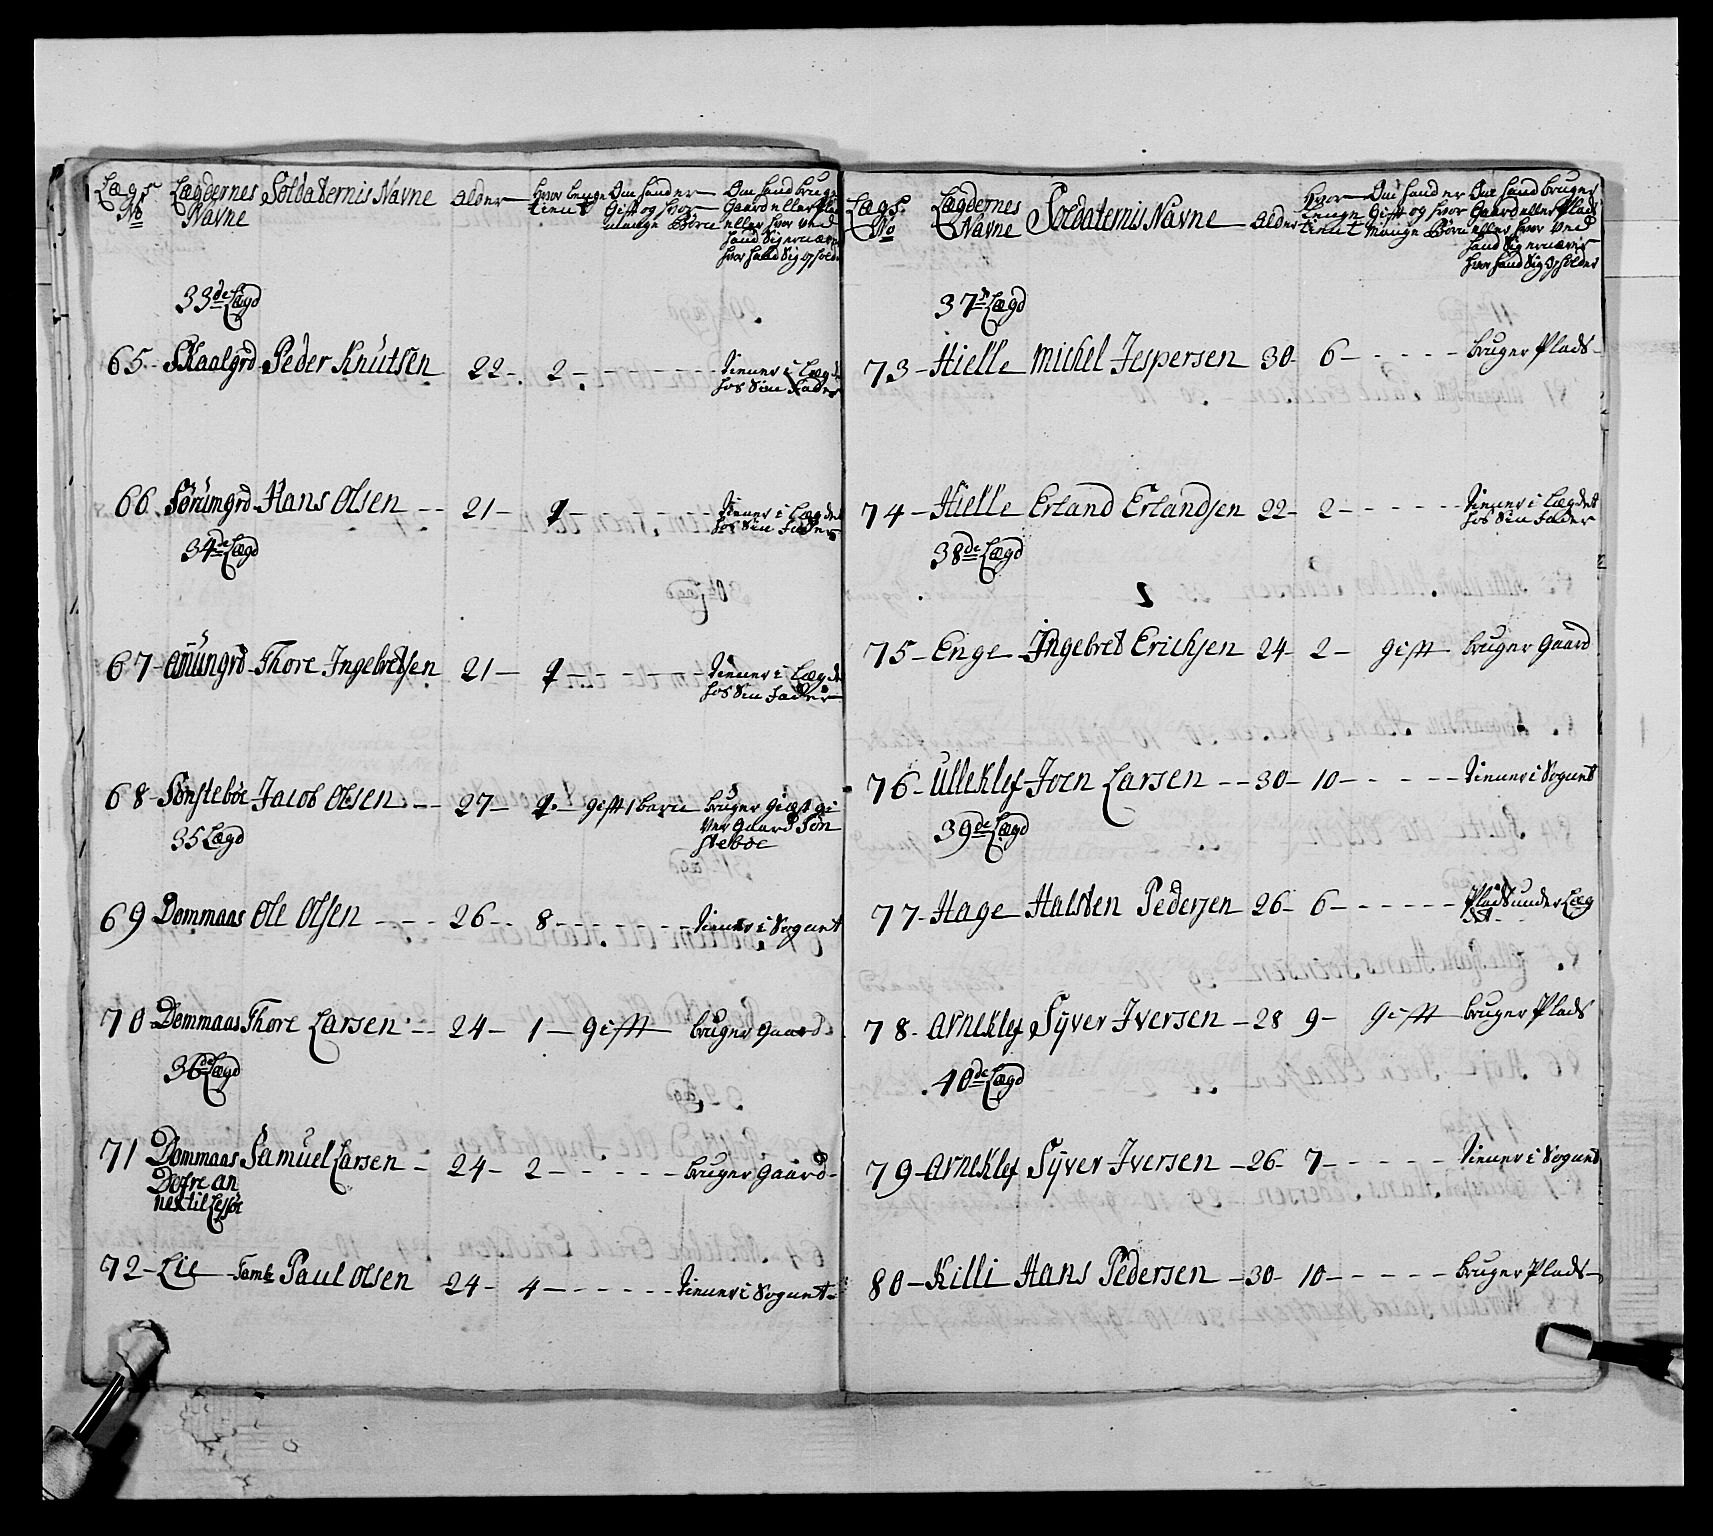 Lægs No
Lægdernes Navne
Soldaternis Navne
Alder
hvor lenge tient
Om hand er Gift og hvor mange Børn
Om hand bruger Gaard eller Plads eller hvor ved hand Sig ernærer hvor hand Sig opholder
33de Lægd
65- Skaalgrd Peder Knutsen 22- 2- tiener i Lægdet
hos Sin Fader
66 Sørumgrd Hans Olsen -- 21- 1- tiener i Lægdet
hos Sin Fader
34de Lægd
67- Amungrd Thore Ingebretsen 21- 1- tiener i Lægdet
hos Sin Fader
68- Sønsteboe Jacob Olsen -- 27- 1- gift 1 barn bruger Giæstgi
ver Gaard Søn
steboe
35 Lægd
69 Dommaas Ole Olsen --- 26- 8- tiener i Sognet
70 Dommaas Thore Larsen -- 24- 1- gift bruger Gaard
36de Lægd
71 Dommaas Samuel Larsen - 24- 2- bruger Gaard-
Dofre an
nex til Lessøe
72- Lie Samb: Paul Olsen 24- 4- tiener i Sognet-
Lægs: No
Lægdernes Navne
Soldaternis Navne
Alder
hvor lenge tient
Om hand er Gift og hvor mange Børn
Om hand bruger Gaard eller Plads eller hvor ved hand Sig ernærer hvor hand Sig opholder
37de Lægd
73- Hielle Michel Jespersen 30- 6- bruger Plads-
74- Hielle Erland Erlandsen 22- 2- tiener i Lægdet
hos Sin Fader
38de Lægd
75- Enge Ingebret Erichsen 24- 2- gift bruger Gaard
76- Ulleklef Joen Larsen -- 30- 10- tiener i Sognet
39de Lægd
77- Hage Halsten Pedersen 26- 6- Plads under Læg
det
78- Arneklef Syver Iversen - 28 9- gift bruger Plads
40de Lægd
79- Arneklef Syver Iversen - 26- 7- tiener i Sognet
80- Killi Hans Pedersen - 30- 10- bruger Plads-